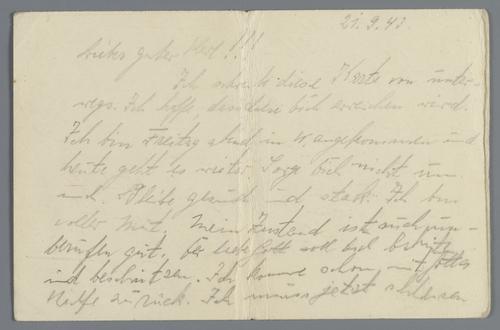 21.9.43
Lieber guter !!!
Ich schreibe diese Karte von unter-
wegs. Ich hoffe, dass diese Dich erreichen wird.
Ich bin Freitag abend in W. angekommen und
heute geht es weiter. Sorge Dich nicht um
mich. Bleibe gesund und stark. Ich bin
voller Mut. Mein Zustand ist auch un-
berufen gut. Der liebe Gott soll Dich behüten
und beschützen. Ich komme schon mit Gottes
Hilfe zurück. Ich muss jetzt schliessen